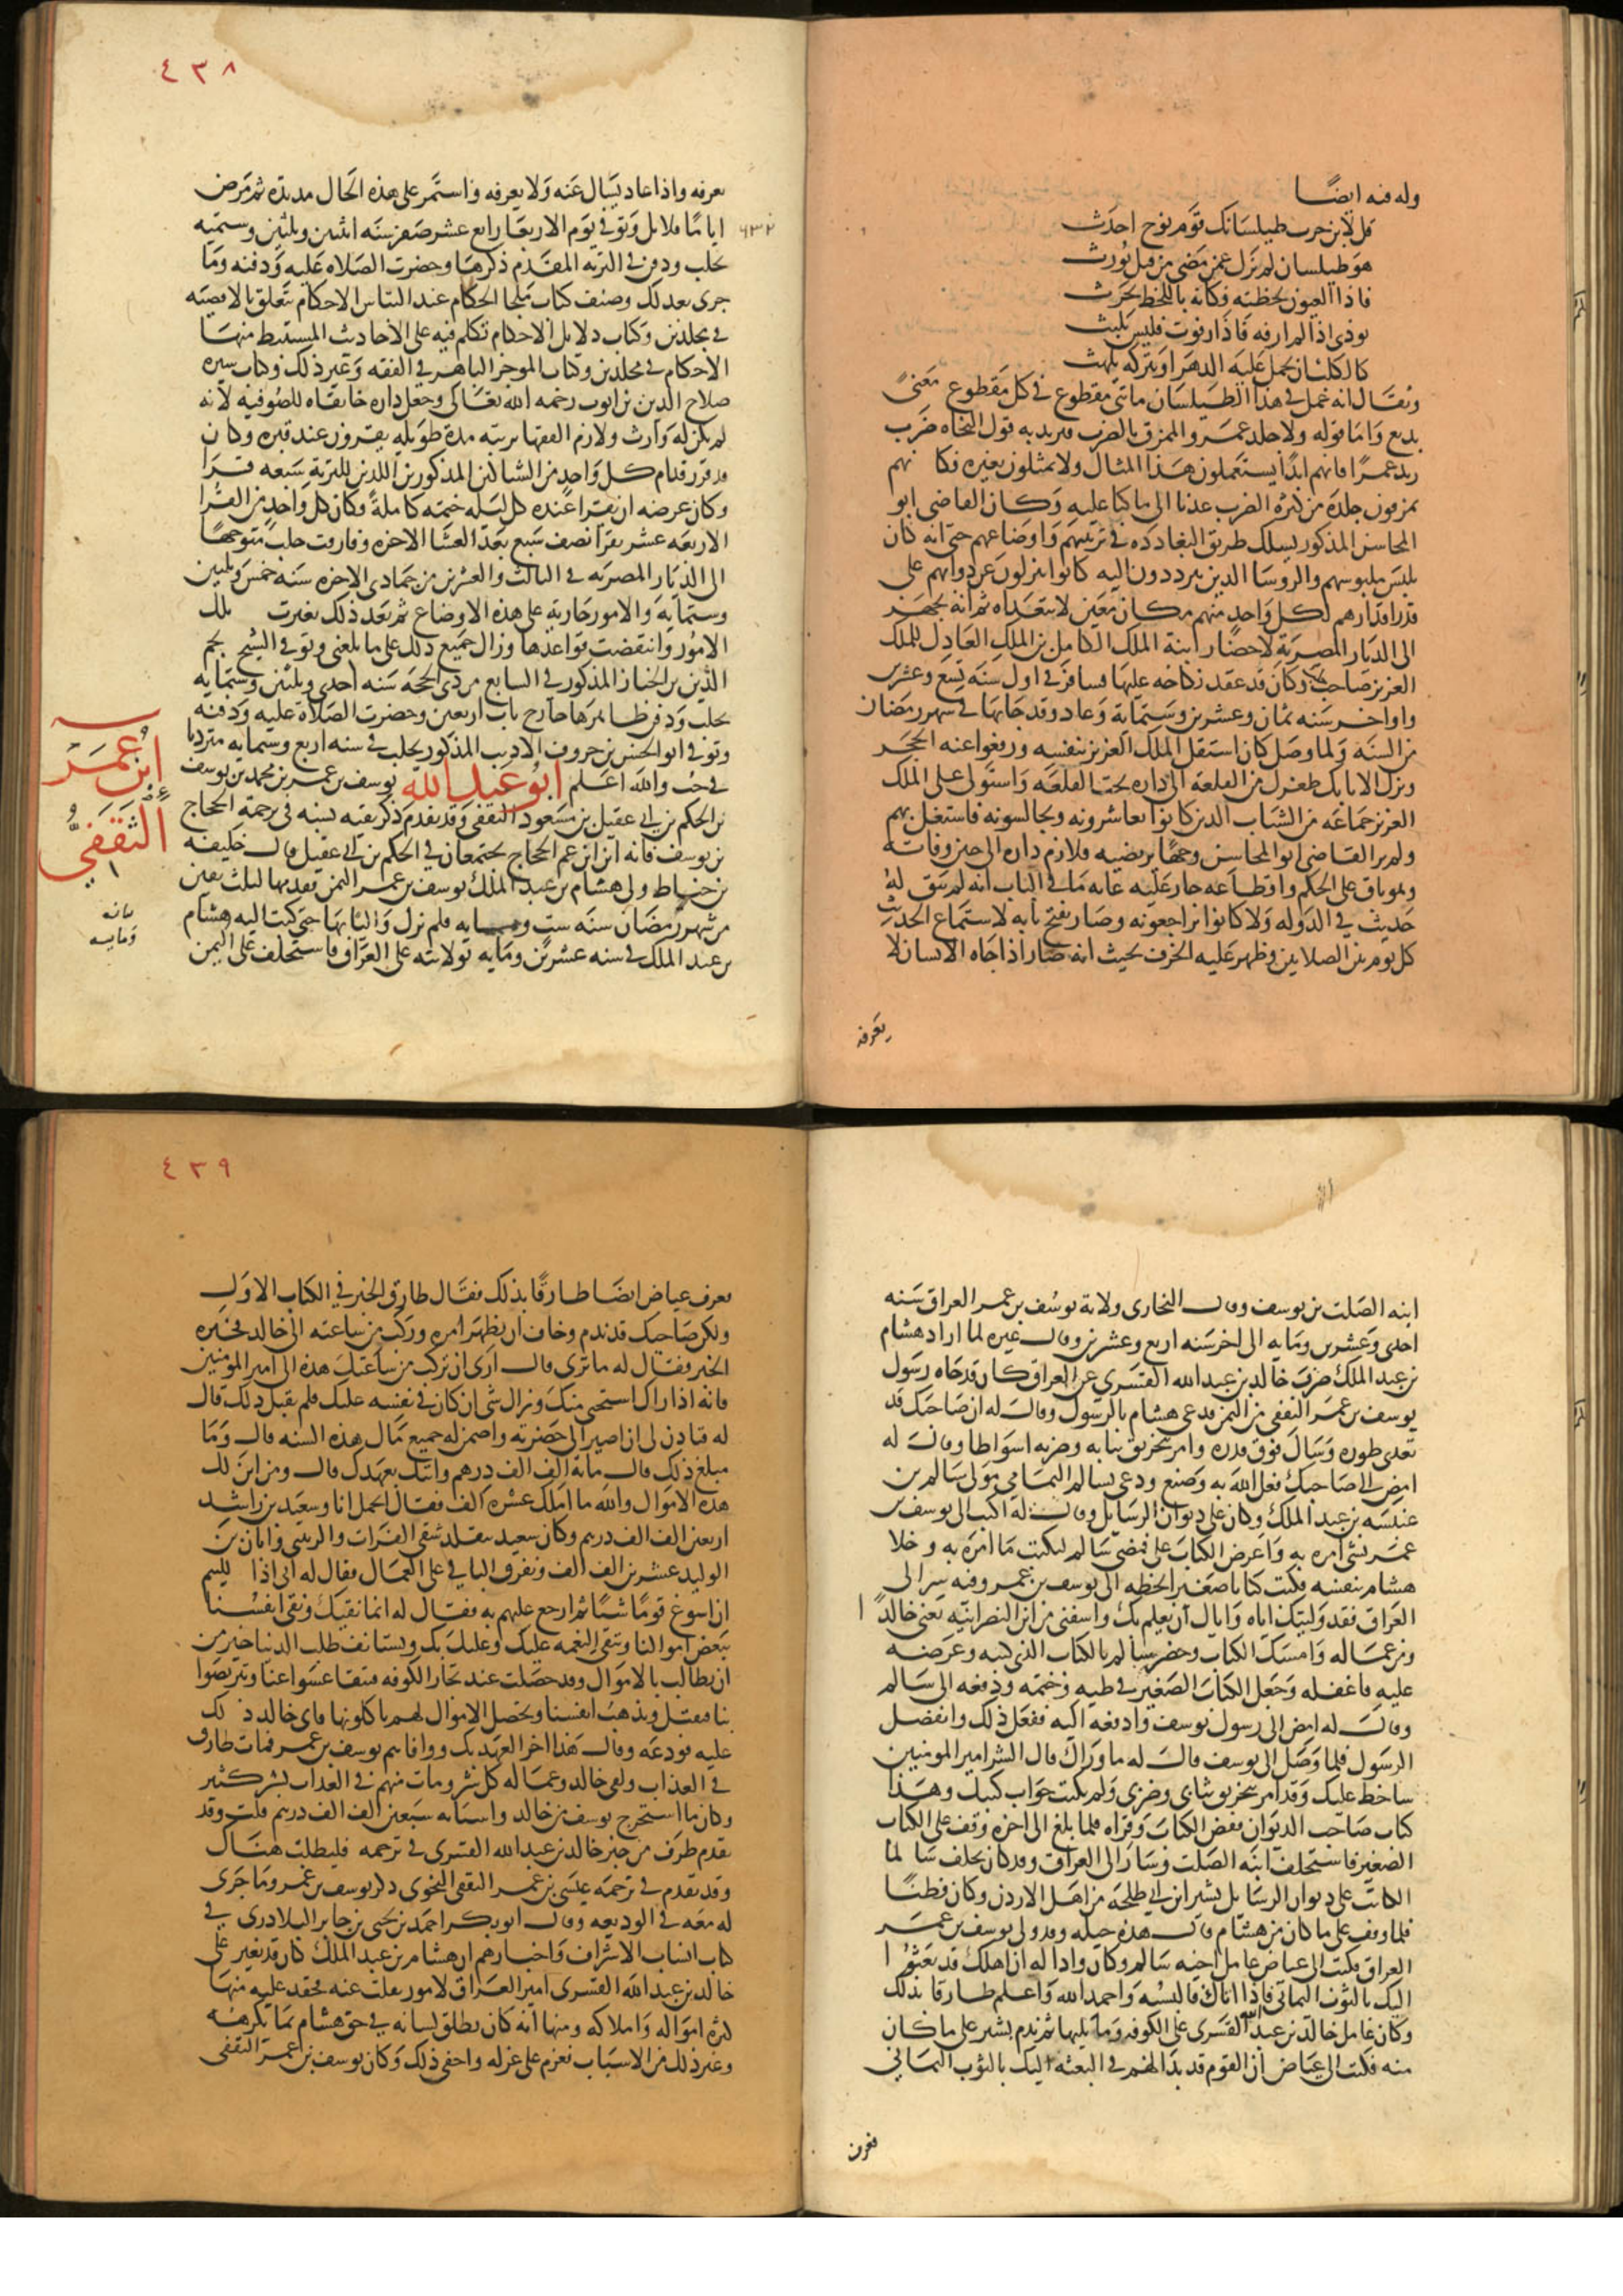 وله فيه ايضًا
قل لابن حرب طيلسانك قوم نوح احدث
هو طيلسان لم يزل عمن مضى من قبل يورث
فاذا العيون لحظنه فكانه باللحظ يحرث
يودي اذا لم ارفه فاذا رفوت فليس يلبث
كالكلب ان تحمل عليه الدهر او تتركه يلهث
ويقال انه عمل في هذا الطيلسان مايتي مقطوع في كل مقطوع معنىً
بديع واما قوله ولا جلد عمرو الممزق بالضرب فيريد به قول النحاه ضرب
زيد عمرًا فانهم ابدًا يستعملون هذا المثال ولا يمثلون بغيره فكا نهم
يمزقون جلده من كثره الضرب عدنا الى ما كنا عليه وكان القاضي ابو
المحاسن المذكور يسلك طريق البغاددة في ترتيبهم واوضاعهم حتى انه كان
يلبس ملبوسهم والروسا الذين يترددون اليه كانوا ينزلون عن دوابهم على
قدر اقدارهم لكل واحد منهم مكان معين لا يتعداه ثم انه تجهز
الى الديار المصرية لاحضار ابنة الملك الكامل بن الملك العادل للملك
العزيز صاحب حلب وكان قد عقد نكاحه عليها فسافر في اول سنه تسع وعشرين
واواخر سنه ثمان وعشرين وستماية وعاد وقد جا بها في شهر رمضان
من السنة ولما وصل كان استقل الملك العزيز بنفسه ورفعوا عنه الحجر
ونزل الاتابك طغرل من القلعه الى داره تحت القلعه واستولى على الملك
العزيز جماعه من الشباب الذين كانوا يعاشرونه ويجالسونه فاشتغل بهم
ولم ير القاضي ابو المحاسن وجهًا يرتضيه فلازم داره الى حين وفاته
وهو باق على الحكم واقطاعه جار عليه غايه ما في الباب انه لم يبق له
حديث في الدوله ولا كانوا يراجعونه وصار يفتح بابه لاستماع الحديث
كل يوم بين الصلاتين وظهر عليه الخرف بحيث انه صار اذا جاه الانسان لا
يعرفه
٤٣٨
يعرفه واذا عاد يسال عنه ولا يعرفه واستمر على هذه الحال مديدة ثم مرض
اياما قلايل وتوفي يوم الاربعا رابع عشر صفر سنه اثنين وثلثين وستميه
٦٣٢
بحلب ودفن في التربه المقدم ذكرها وحضرت الصلاه عليه ودفنه وما
جرى بعد ذلك وصنف كتاب ملجا الحكام عند التباس الاحكام يتعلق بالاقضيه
في مجلدين وكتاب دلايل الاحكام تكلم فيه على الاحاديث المستنبط منها
الاحكام في مجلدين وكتاب الموجز الباهر في الفقه وغير ذلك وكتاب سيره
صلاح الدين بن ايوب رحمه الله تعالى وجعل داره خانقاه للصوفيه لانه
لم يكن له وارث ولازم الفقها تربته مدة طويله يقرون عند قبره وكان
قد قرر قدام كل واحد من الشباكين المذكورين اللذين للتربة سبعه قرا
وكان غرضه ان يقرا عنده كل ليله ختمه كاملةً وكان كل واحد من القرا
الاربعه عشر يقرا نصف سبع بعد العشا الاخره وفارقت حلب متوجهًا
الى الديار المصريه في الثالث والعشرين من جمادى الاخره سنه خمس وثلثين
وستمايه والامور جاريه على هذه الاوضاع ثم بعد ذلك تغيرت تلك
الامور وانتقضت قواعدها وزال جميع ذلك على ما بلغني وتوفي الشيخ نجم
الدين بن الخباز المذكور في السابع من ذي الحجه سنه احدى وثلثين وستمايه
بحلب ودفن ظاهرها خارج باب اربعين وحضرت الصلاة عليه ودفنه
وتوفي ابو الحسن بن خروف الاديب المذكور بحلب في سنه اربع وستمايه مترديا
في جب والله اعلم ابو عبد الله يوسف بن عمر بن محمد بن يوسف
ابن عمر
الثقفي
بن الحكم بن ابي عقيل بن مسعود الثقفي وقد تقدم ذكر بقيه نسبه في ترجمة الحجاج
بن يوسف فانه ابن ابن عم الحجاج يجتمعان في الحكم بن ابي عقيل قال خليفه
بن خياط ولي هشام بن عبد الملك يوسف بن عمر اليمن فقدمها لثلث بقين
من شهر رمضان سنه ست ومايه فلم يزل واليا بها حتى كتب اليه هشام
بن عبد الملك في سنه عشرين ومايه بولايته على العراق فاستخلف على اليمن
ابنه الصلت بن يوسف وقال البخاري ولاية يوسف بن عمر العراق سنه
احدى وعشرين ومايه الى اخر سنه اربع وعشرين وقال غيره لما اراد هشام
بن عبد الملك صرف خالد بن عبد الله القسري عن العراق كان قد جاه رسول
يوسف بن عمر الثقفي من اليمن فدعى هشام بالرسول وقال له ان صاحبك قد
تعدى طوره وسال فوق قدره وامر بتخريق ثيابه وضربه اسواطا وقال له
امض الى صاحبك فعل الله به وصنع ودعى بسالم اليماني مولى سالم بن
عنبسه بن عبد الملك وكان على ديوان الرسايل وقال له اكتب الى يوسف بن
عمر بشي امره به واعرض الكتاب علي فمضى سالم ليكتب ما امره به وخلا
هشام بنفسه فكتب كتابا صغيرا بخطه الى يوسف بن عمر وفيه سر الى
العراق فقد وليتك اياه واياك ان يعلم بك واشفني من ابن النصرانيه يعني خالدًا
ومن عماله وامسك الكتاب وحضر سالم بالكتاب الذي كتبه وعرضه
عليه فاغفله وجعل الكتاب الصغير في طيه وختمه ودفعه الى سالم
وقال له امض الى رسول يوسف وادفعه اليه ففعل ذلك وانفصل
الرسول فلما وصل الى يوسف قال له ما وراك قال الشر امير المومنين
ساخط عليك وقد امر بتخريق ثيابي وضربي ولم يكتب جواب كتبك وهذا
كتاب صاحب الديوان ففض الكتاب وقراه فلما بلغ الى اخره وقف على الكتاب
الصغير فاستخلف ابنه الصلت وسار الى العراق وقد كان يخلف سالما
الكاتب على ديوان الرسايل بشير ابن ابي طلحه من اهل الاردن وكان فطنًا
فلما وقف على ما كان من هشام قال هذه حيله وقد ولى يوسف بن عمر
العراق فكتب الى عياض عامل اجمه سالم وكان وادا له ان اهلك قد بعثوا
اليك بالثوب اليماني فاذا اتاك فالبسه واحمد الله واعلم طارقا بذلك
وكان عامل خالد بن عبد الله القسري على الكوفه وما يليها ثم ندم بشير على ما كان
منه فكتب الى عياض ان القوم قد بدا لهم في البعثه اليك بالثوب اليماني
فعرف
٤٣٩
فعرف عياض ايضا طارقًا بذلك فقال طارق الخبر في الكتاب الاول
ولكن صاحبك قد ندم وخاف ان يظهر امره وركب من ساعته الى خالد فخبره
الخبر فقال له ما ترى قال ارى ان تركب من ساعتك هذه الى امير المومنين
فانه اذا راك استحيى منك وزال شي ان كان في نفسه عليك فلم يقبل ذلك قال
له فتاذن لي ان اصير الى حضرته واضمن له جميع مال هذه السنه قال وما
مبلغ ذلك قال مائة الف الف درهم واتيك بعهدك قال ومن اين لك
هذه الاموال والله ما املك عشره الف فقال اتحمل انا وسعيد بن راشد
اربعين الف الف درهم وكان سعيد يتقلد سقي الفرات والزينبي وابان بن
الوليد عشرين الف الف ونفرق الباقي على العمال فقال له اني اذا للئيم
ان اسوغ قومًا شيًا ثم ارجع عليهم به فقال له انما نقيك ونقي انفسنا
ببعض اموالنا وتبقى النعمه عليك وعلينا بك ونستانف طلب الدنيا خير من
ان يطالب بالاموال وقد حصلت عند تجار الكوفه فيتقاعسوا عنا ويتربصوا
بنا فنقتل وتذهب انفسنا وتحصل الاموال لهم ياكلونها فابى خالد ذلك
عليه فودعه وقال هذا اخر العهد بك ووافاهم يوسف بن عمر فمات طارق
في العذاب ولقي خالد وعماله كل شر ومات منهم في العذاب بشر كثير
وكان ما استخرج يوسف من خالد واسبابه سبعين الف الف درهم قلت وقد
تقدم طرف من خبر خالد بن عبد الله القسري في ترجمه فليطلب هناك
وقد تقدم في ترجمه عيسى بن عمر الثقفي النحوي ذكر يوسف بن عمر وما جرى
له معه في الوديعه وقال ابو بكر احمد بن يحيى بن جابر البلاذري في
كتاب انساب الاشراف واخبارهم ان هشام بن عبد الملك كان قد تغير على
خالد بن عبد الله القسري امير العراق لامور نقلت عنه فحقد عليه منها
كثره امواله واملاكه ومنها انه كان يطلق لسانه في حق هشام بما يكرهه
وغير ذلك من الاسباب فعزم على عزله واخفى ذلك وكان يوسف بن عمر الثقفي